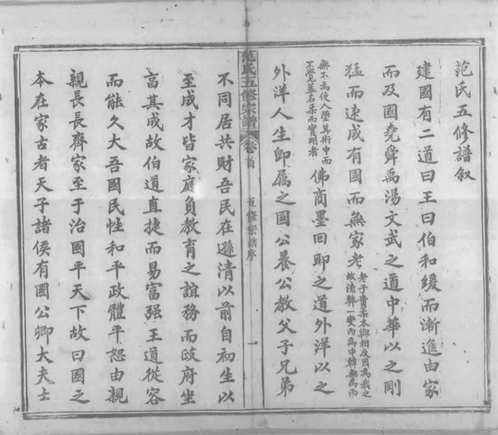 范氏五修譜叙
建國有二道曰王曰伯和緩而漸進由家
而及國堯舜禹湯文武之道中華以之剛
猛而速成有國而無家老
佛商墨回耶之道外洋以之
外洋人生即屬之國公養公教父子兄弟
范氏五修宗譜 卷首 五修宗譜序 一
不同居共財吾民在遜清以前自初生以
至成才皆家庭負教育之誼務而政府坐
富其成故伯道直捷而易富强王道從容
而能久大吾國民性和平政體平恕由親
親長長齊家至于治國平天下故曰國之
本在家古者天子諸侯有國公卿大夫士